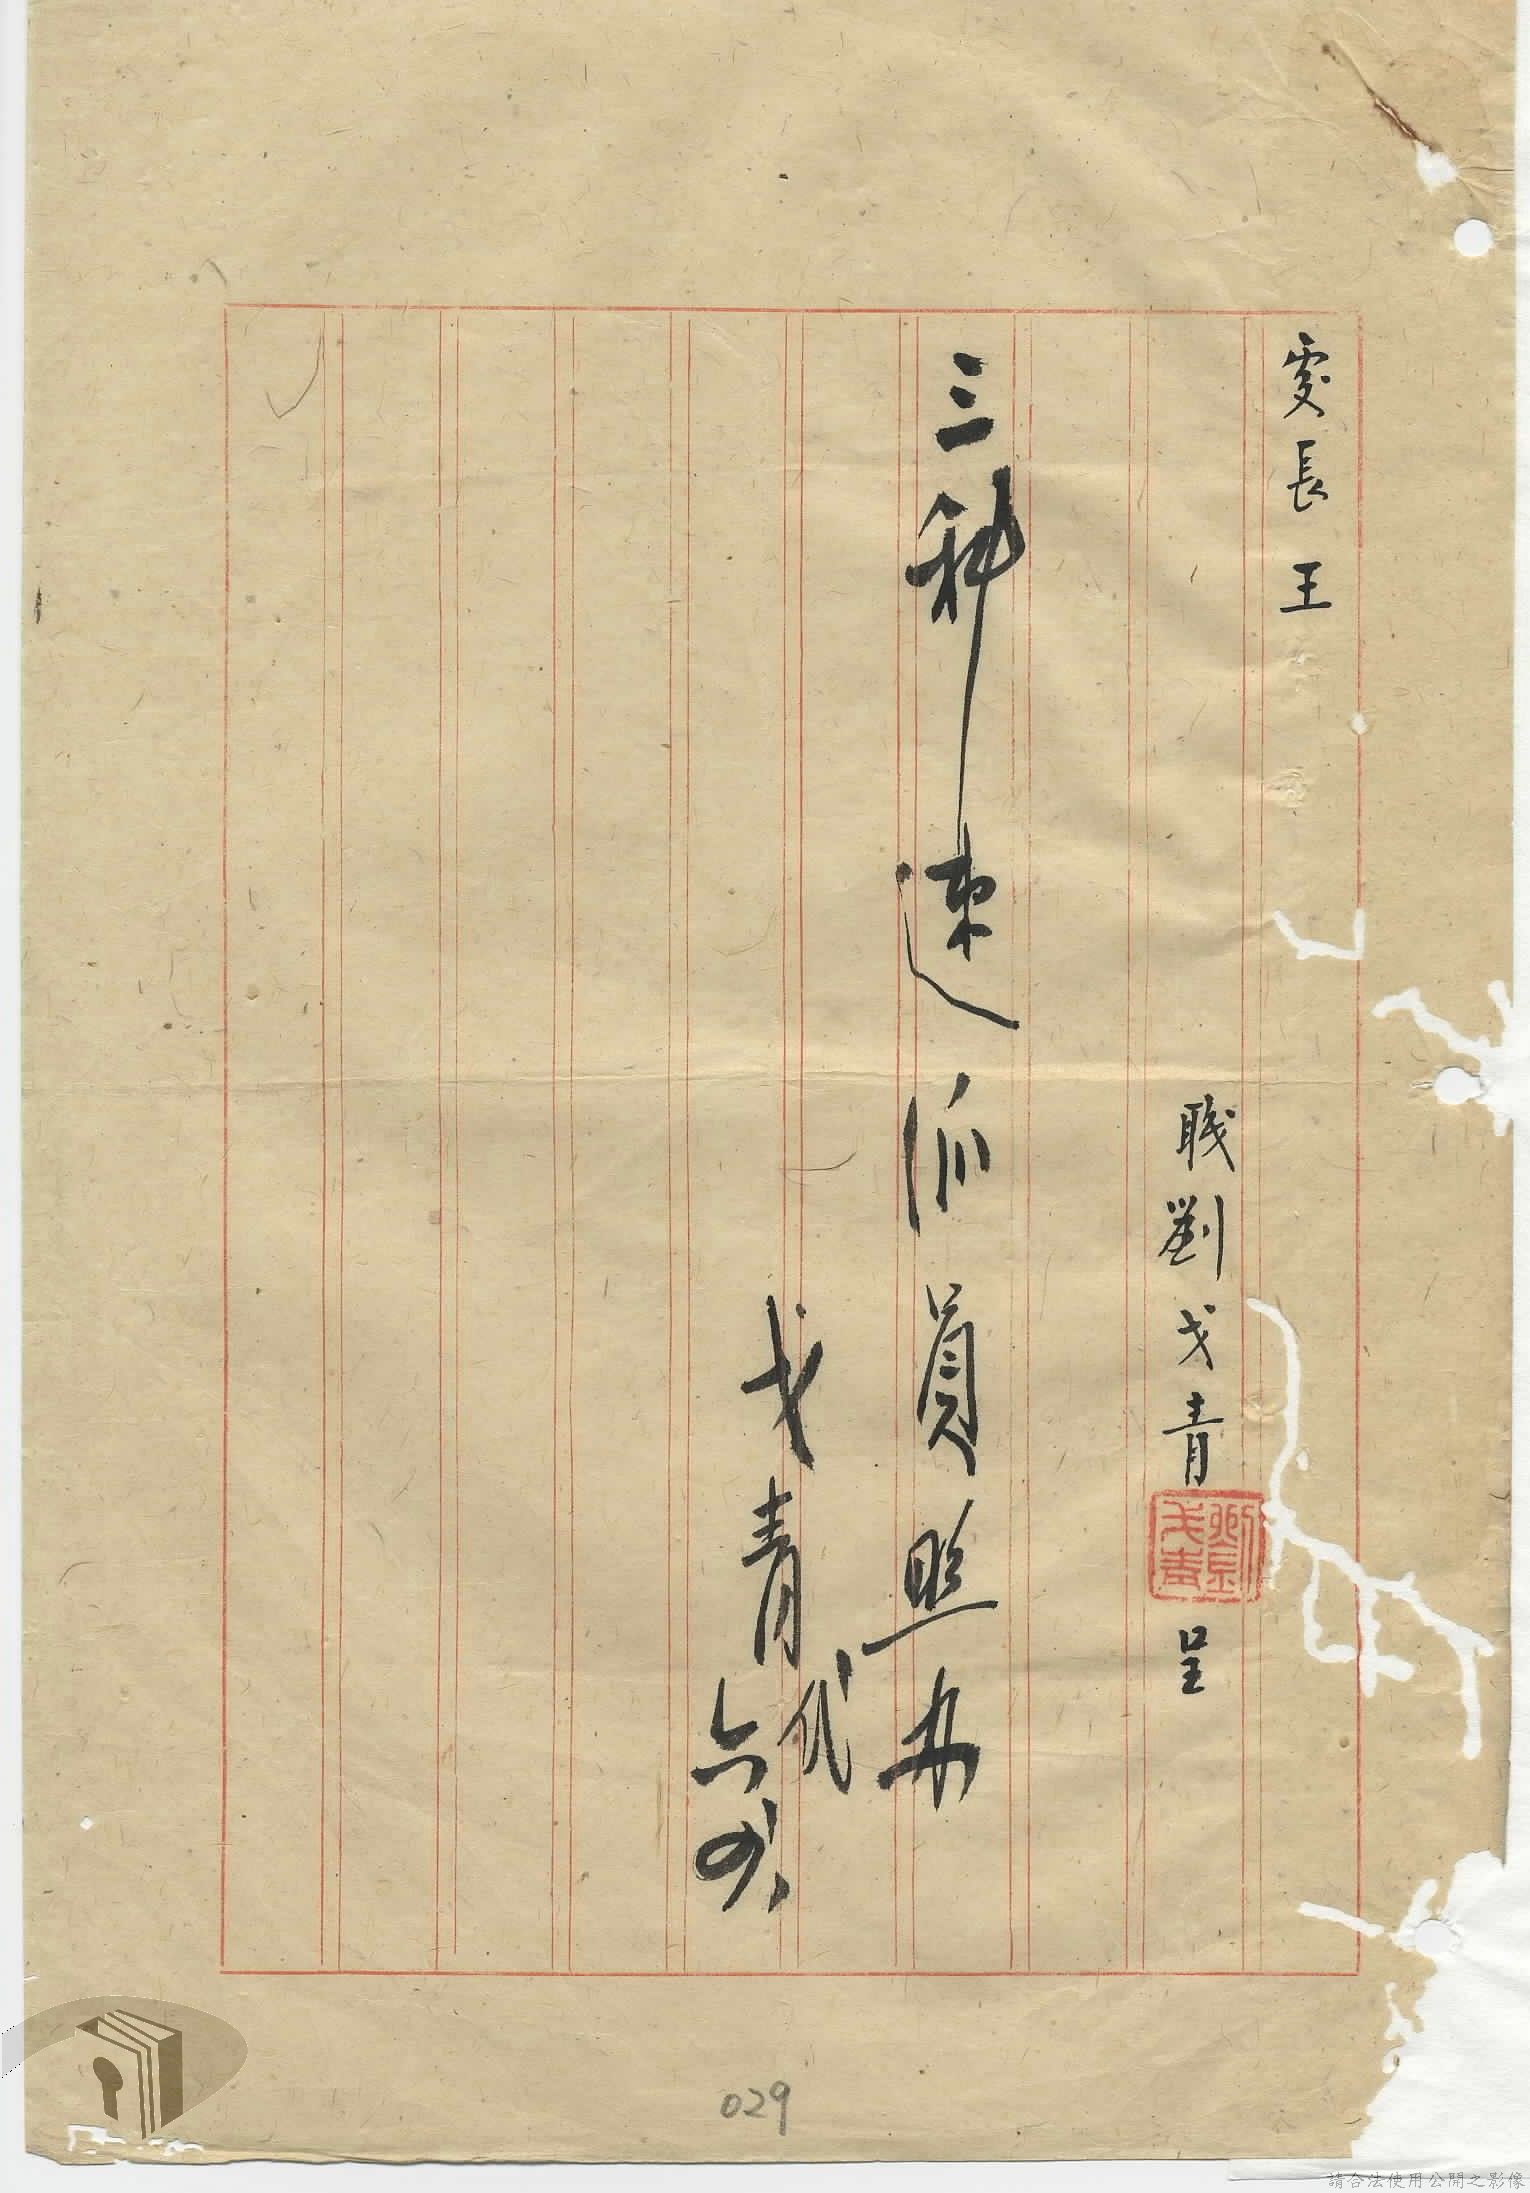 處長王
職劉戈青
劉戈青
呈
三科速派員照办
戈青代
六
029
請合法使用公開之影像